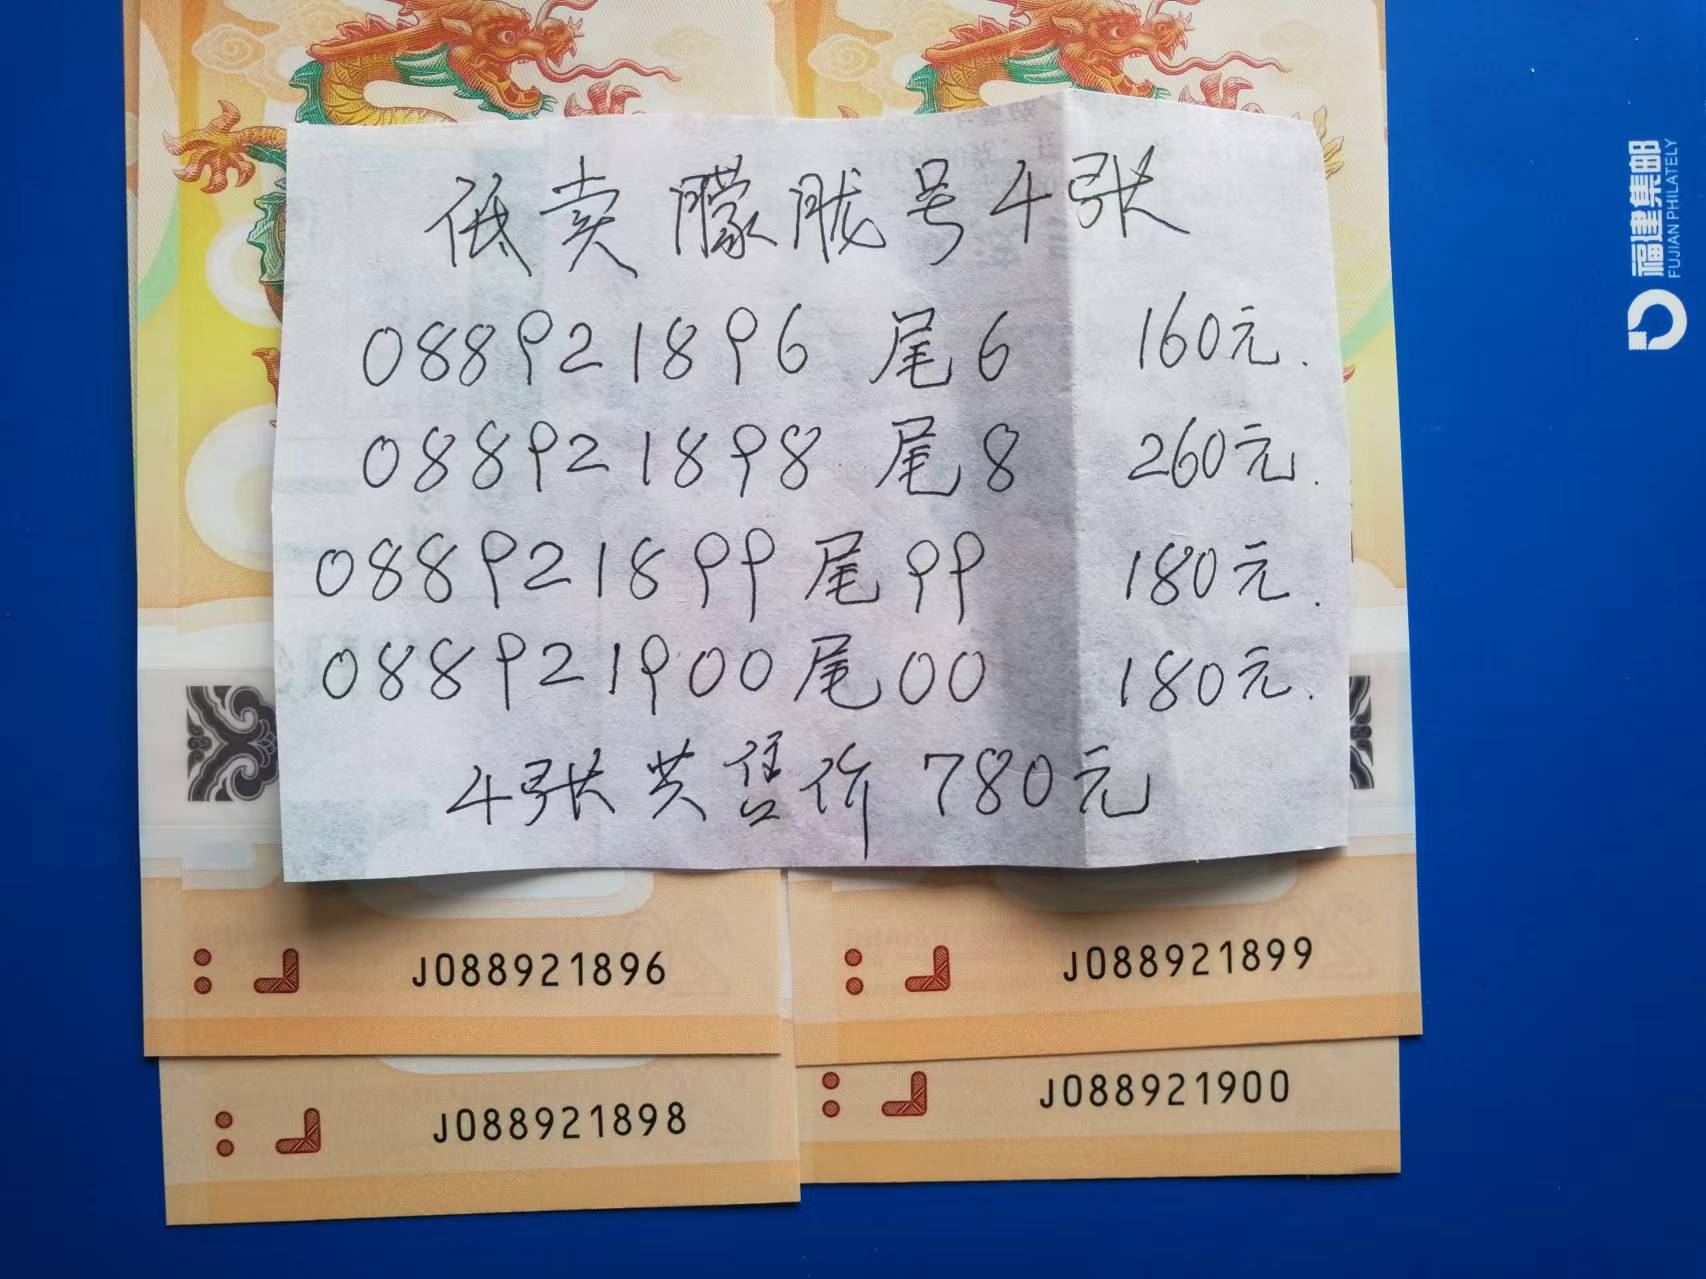 低卖朦胧号4张
088921896 尾6 160元.
088921898 尾8 260元.
088921899 尾99 180元.
088921900 尾00 180元.
4张共售价780元
J088921896
J088921899
J088921898
J088921900
福建集邮
FUJIAN PHILATELY